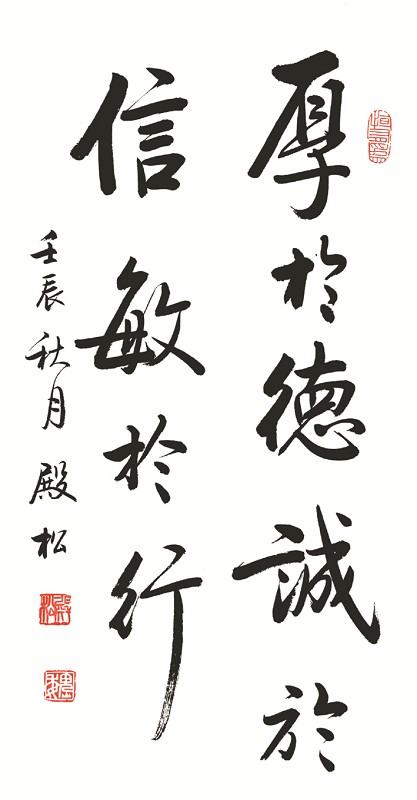 厚於德誠於
信敏於行
壬辰秋月 殿松